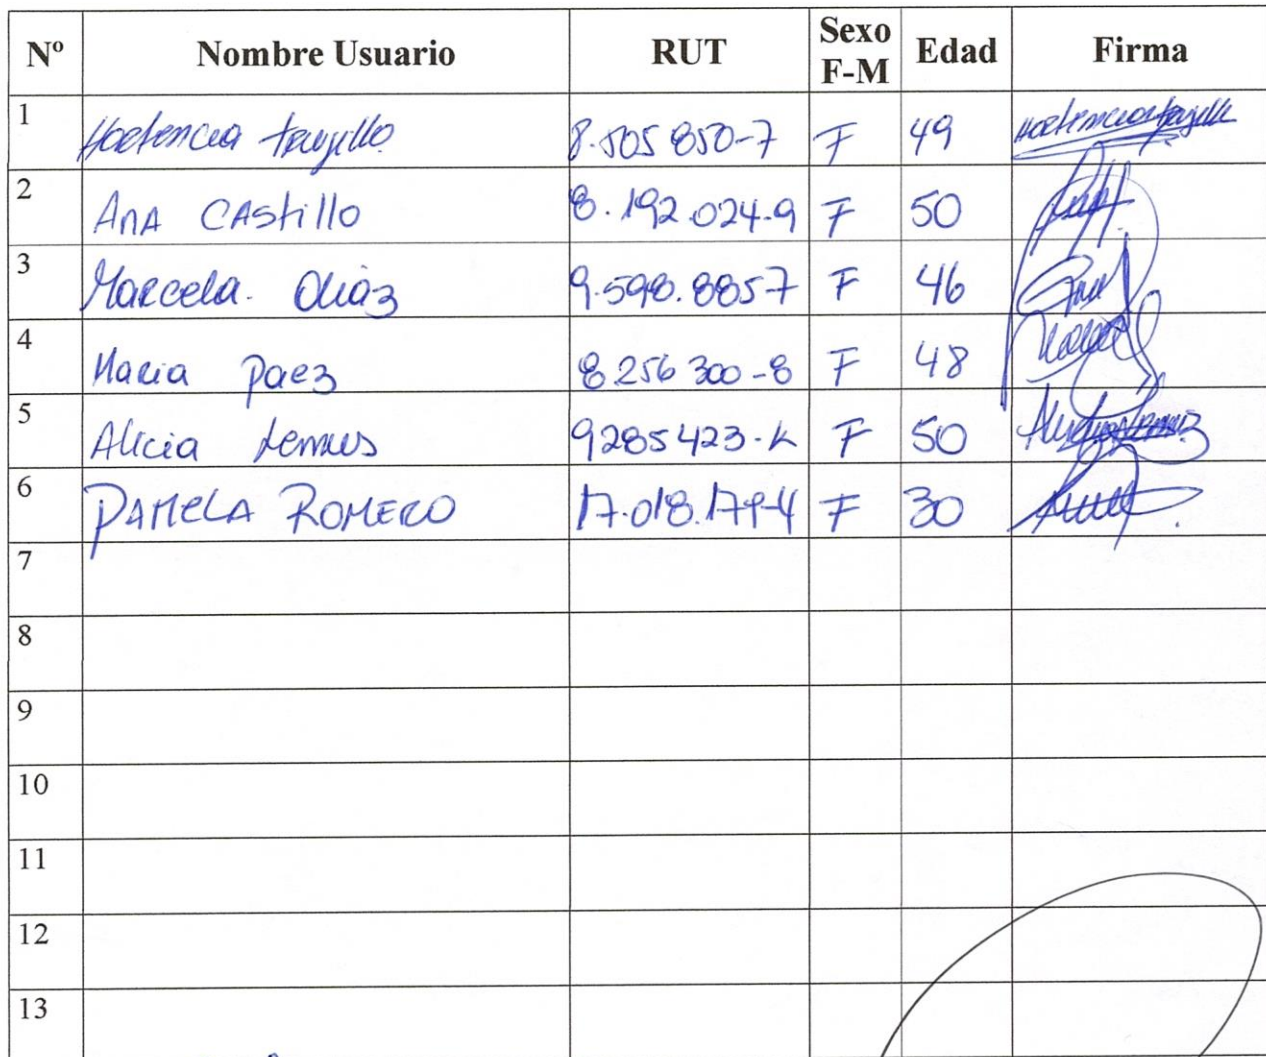 Nº Nombre Usuario RUT Sexo F-M Edad Firma
1 Hortencia Trujillo 8.505 850-7 F 49 Hortencia Trujillo
2 Ana Castillo 8.192.024-9 F 50
3 Marcela. Diaz 9.598.8857 F 46
4 Maria Paez 8 256 300-8 F 48
5 Alicia Lemus 9285423-k F 50
6 PAMELA ROMERO 17.018.179-4 F 30
7
8
9
10
11
12
13